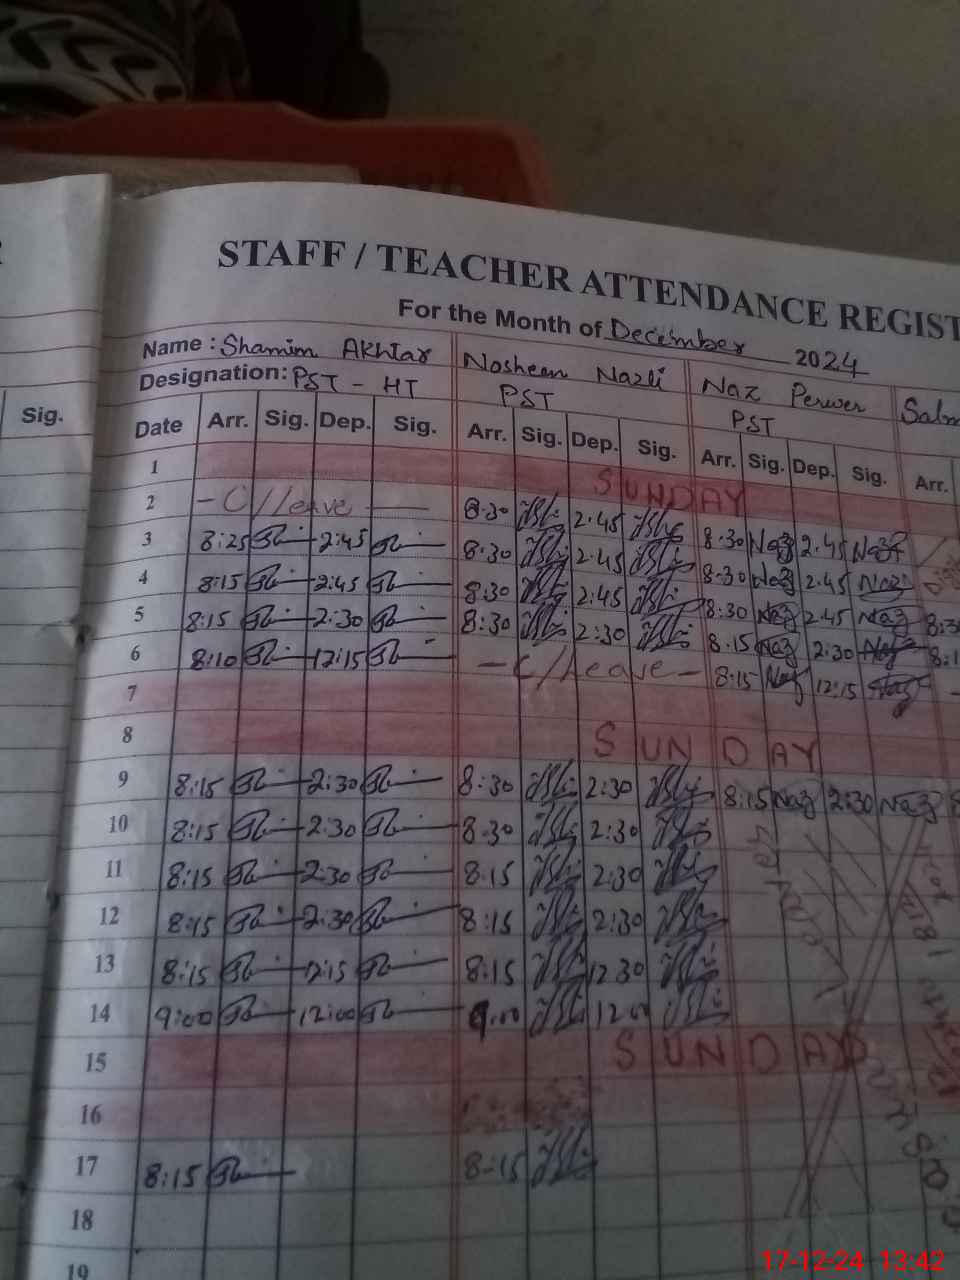 STAFF / TEACHER ATTENDANCE REGIST
For the Month of December 2024
Name : Shamim Akhtar Nosheen Nazli Naz Perwer Salm
Designation: PST - HT PST PST
Sig. Date Arr. Sig. Dep. Sig. Arr. Sig. Dep. Sig. Arr. Sig. Dep. Sig. Arr.
1 SUNDAY
2 - C/leave - 8:30 2.45 8.30 Naz 2.45 Naz
3 8:25 2:45 8:30 2.45 8.30 Naz 2.45 Naz
4 8:15 2:45 8:30 2:45 8:30 Naz 2.45 Naz 8:30
5 8:15 2:30 8:30 2:30 8.15 Naz 2:30 Naz
6 8:10 12:15 - C/Leave - 8:15 Naz 12:15 Naz
7
8 SUNDAY
9 8:15 2:30 8:30 2:30 8:15 Naz 2:30 Naz
10 8:15 2:30 8.30 2:30
11 8:15 2:30 8.15 2:30
12 8:15 2:30 8:15 2:30
13 8:15 12:15 8:15 12 30
14 9:00 12:00 9.00 12 00
15 SUNDAY
16
17 8:15 8-15
18
19
17-12-24 13:42